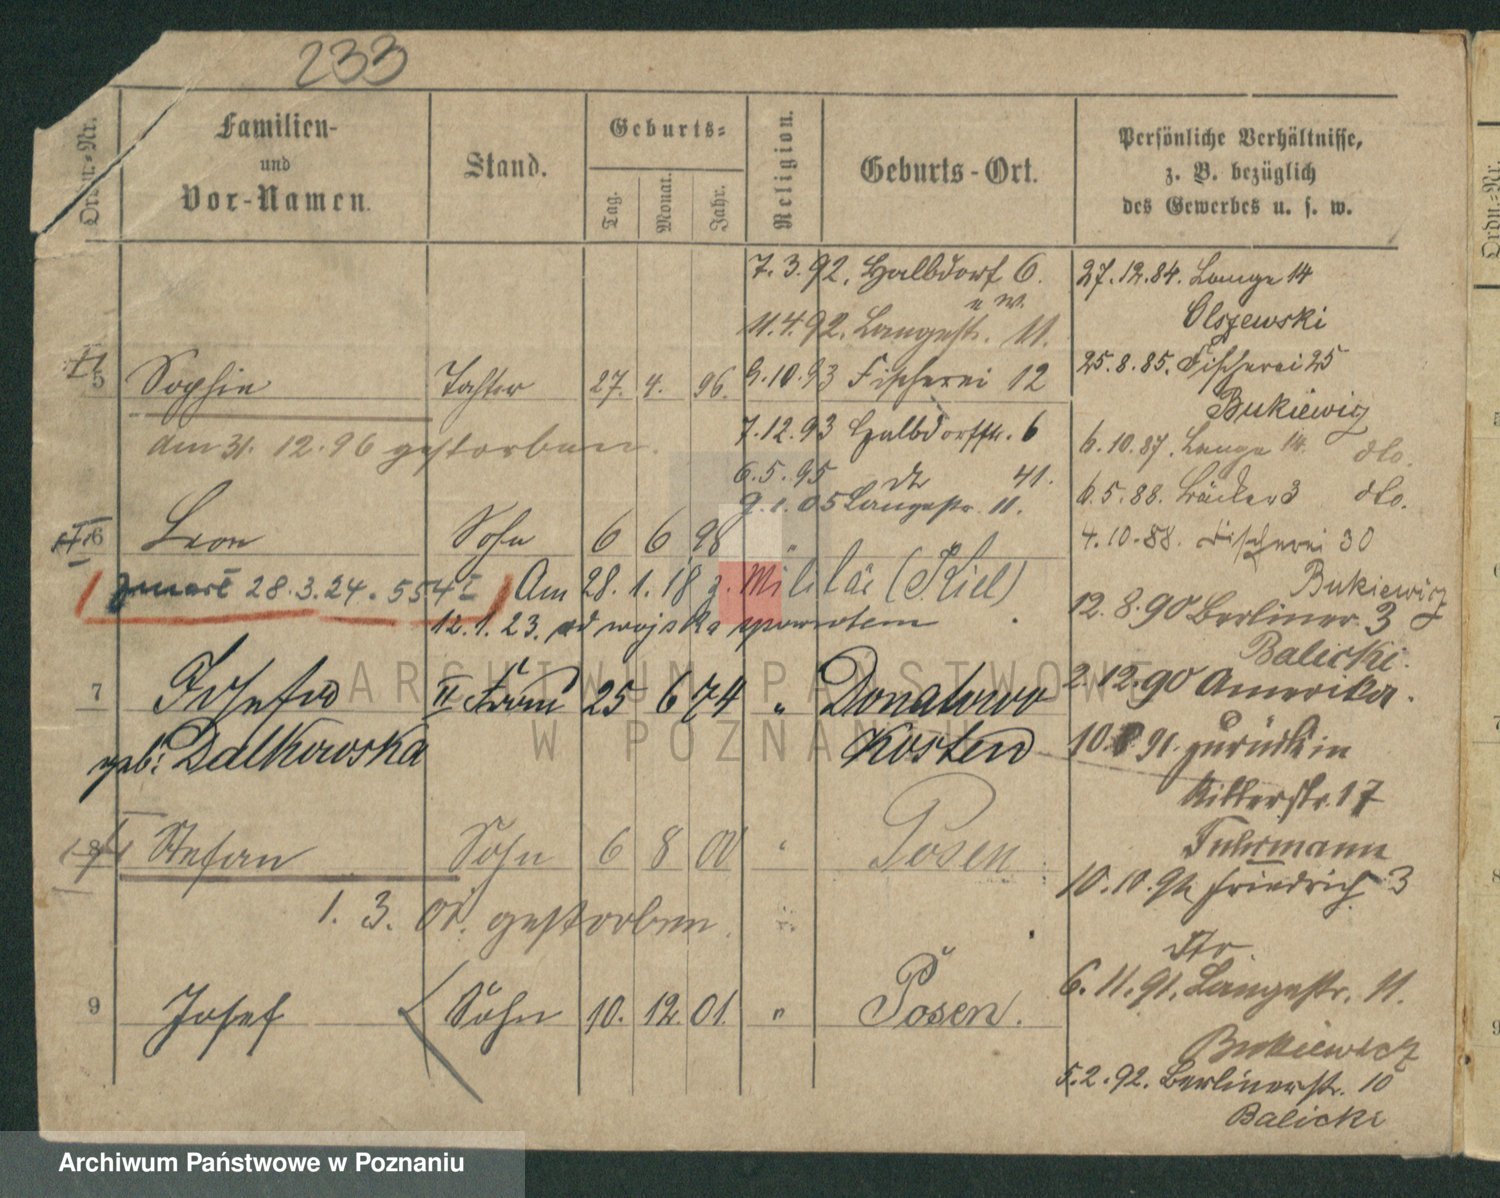 233
Ordn.-Nr.
Familien-
und
Vor-Namen.
Stand.
Geburts-
Tag.
Monat.
Jahr.
Religion.
Geburts-Ort.
Persönliche Verhältnisse,
z. B. bezüglich
des Gewerbes u. s. w.
7. 3. 92. Halbdorf 6.
u W.
11. 4. 92. Langestr. 11.
5 Sophie Tochter 27. 4. 96. 9. 10. 93 Fischerei 12
am 31. 12. 96 gestorben.
7. 12. 93 Halbdorfstr. 6
6. 5. 95 dto 41.
9. 1. 05 Langestr. 11.
6 Leon Sohn 6 6 98 "
28. 3. 24. 554 I
Am 28. 1. 18 z. Militär (Kiel)
12. 1. 23. od wojska spowrotem
7 Josefa II Frau 25 6 74 " Donatowo
geb: Dalkowska Kosten
8 Stefan Sohn 6 8 00 " Posen
1. 3. 01. gestorben.
9 Josef Sohn 10. 12. 01. " Posen.
27. 12. 84. Lange 14
Olszewski
25. 8. 85. Fischerei 25
Bukiewicz
6. 10. 87. Lange 14. dto.
6. 5. 88. Bäcker 3 dto.
4. 10. 88. Fischerei 30
Bukiewicz
12. 8. 90 Berliner. 3
Balicki.
2. 12. 90 Amerika.
10. 91. zurück in
Ritterstr. 17
Fuhrmann
10. 10. 91. Friedrich 3
Str.
6. 11. 91. Langestr. 11.
Bukiewicz
5. 2. 92. Berlinerstr. 10
Balicki
ARCHIWUM PAŃSTWOWE
W POZNANIU
Archiwum Państwowe w Poznaniu
Ordn.-Nr.